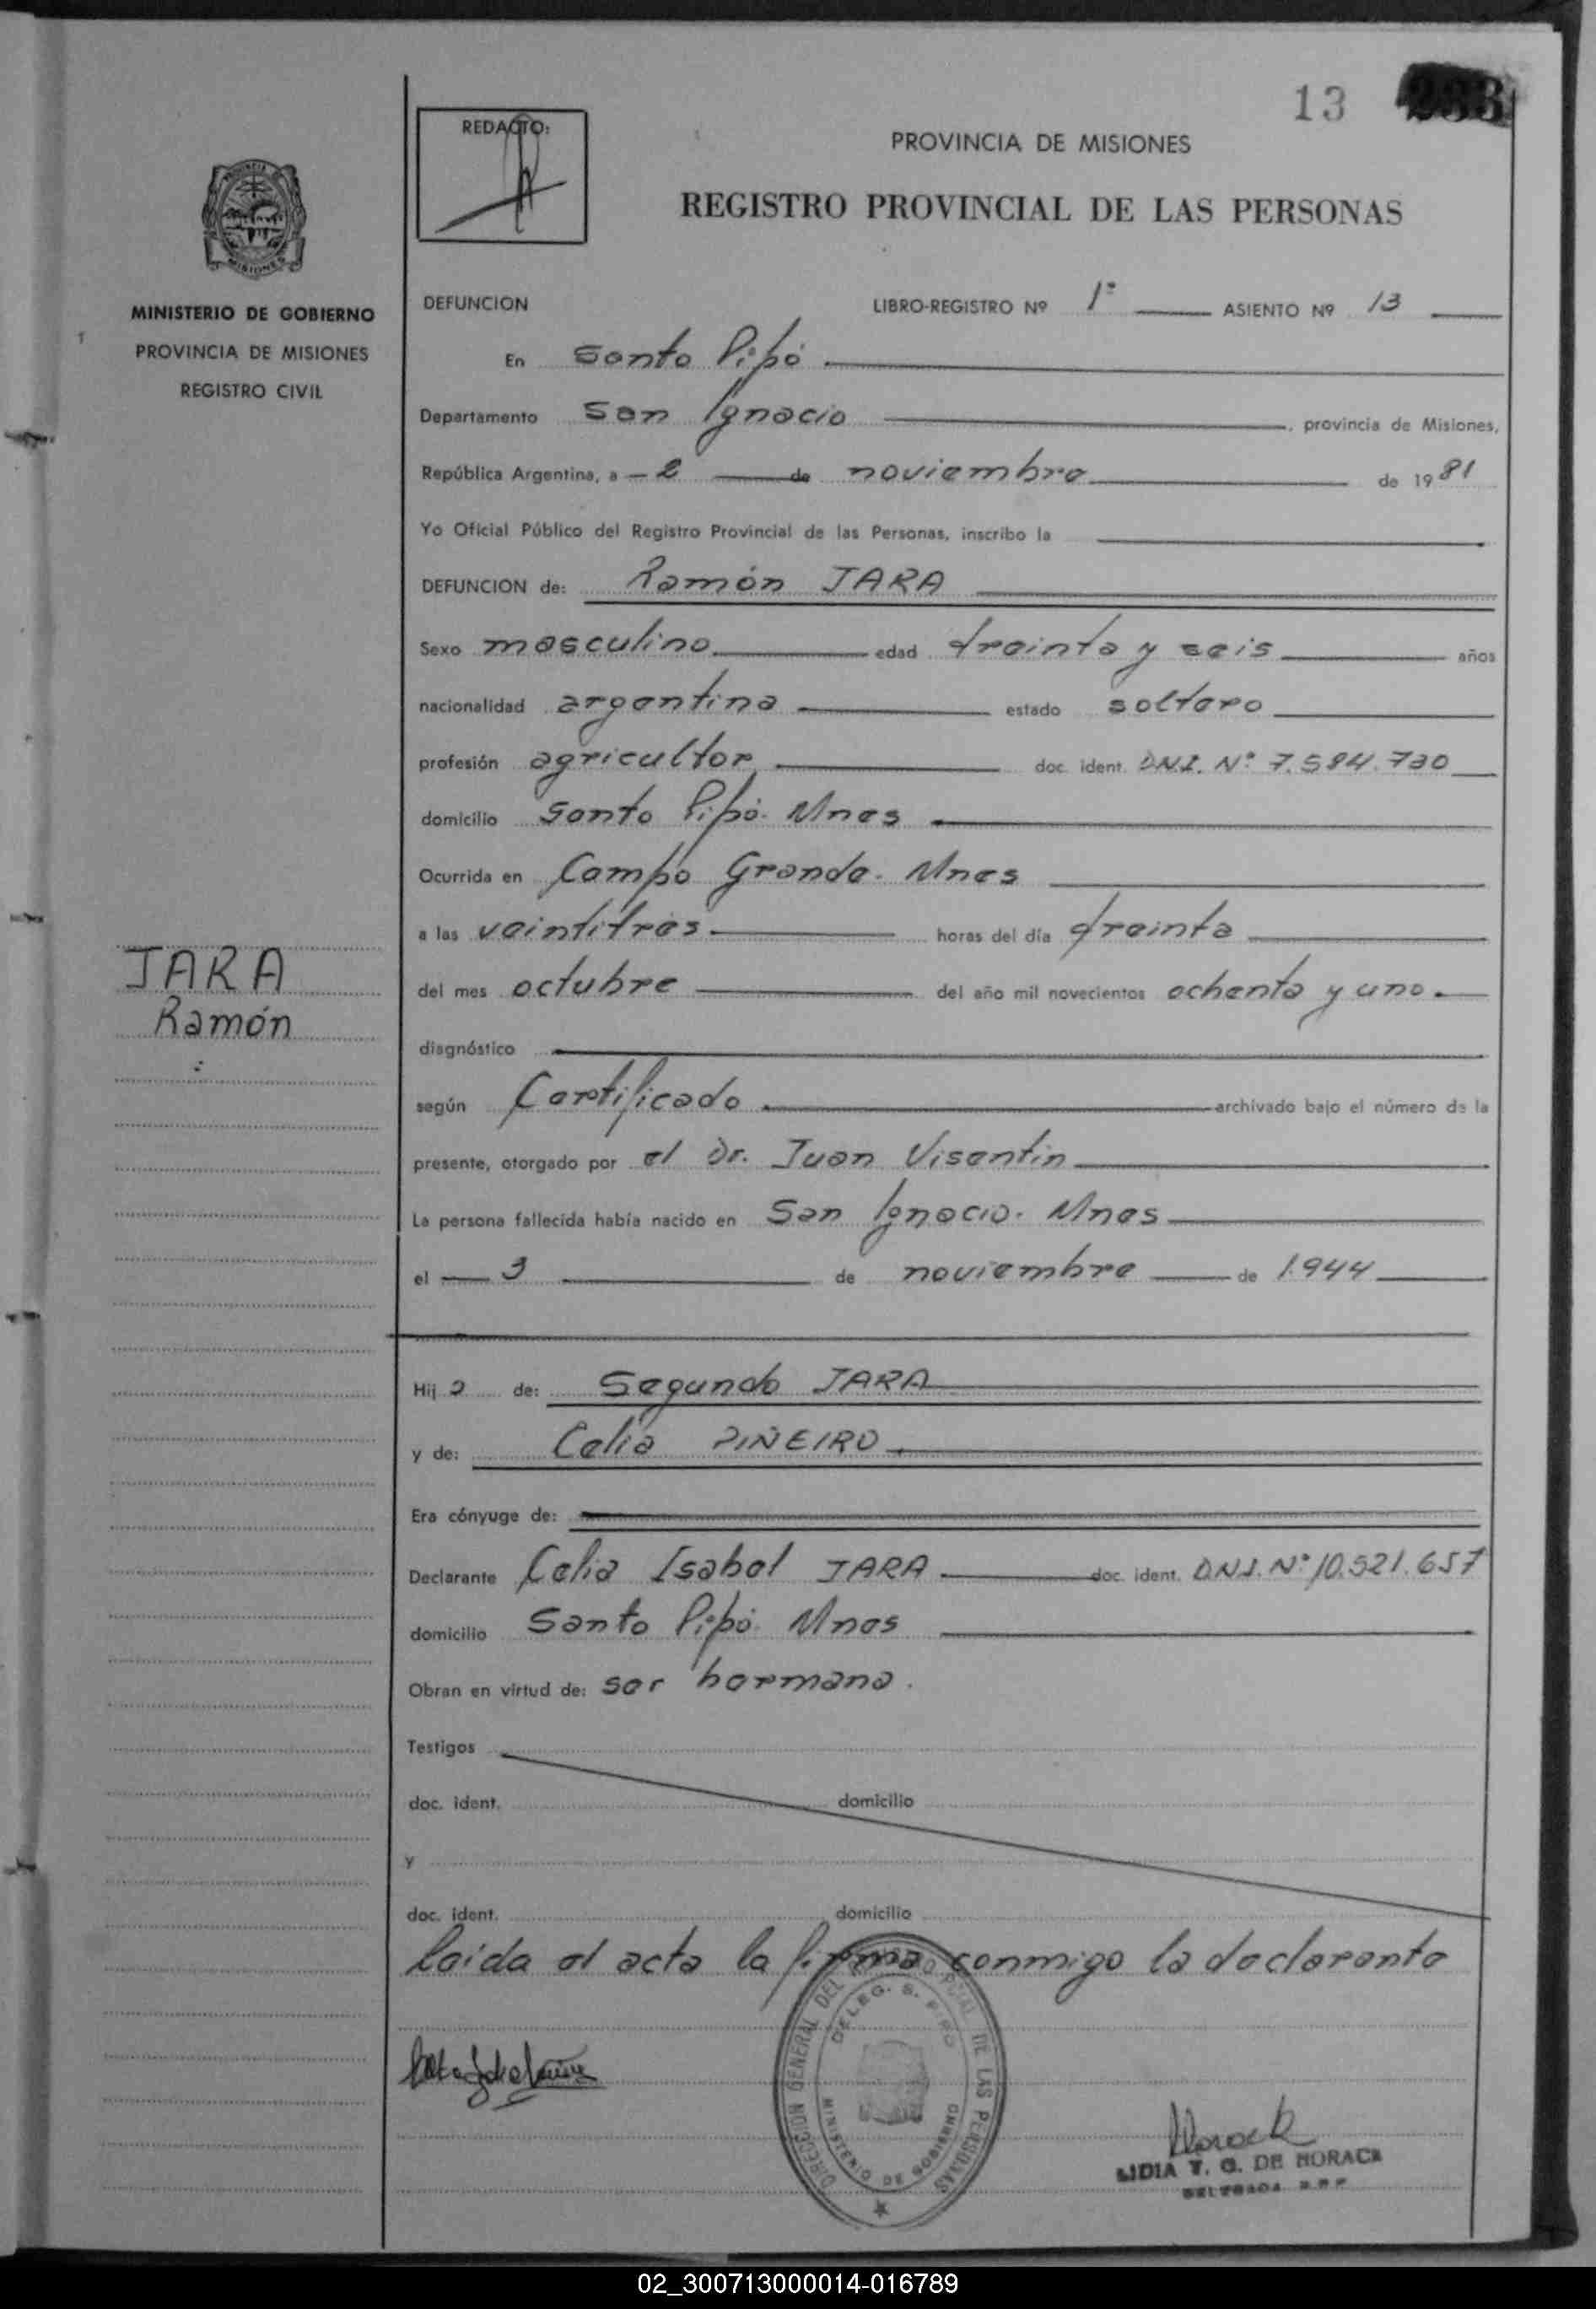 13 233
REDACTO:
PROVINCIA DE MISIONES
REGISTRO PROVINCIAL DE LAS PERSONAS
MISIONES
MINISTERIO DE GOBIERNO
PROVINCIA DE MISIONES
REGISTRO CIVIL
JARA
Ramón
DEFUNCION LIBRO-REGISTRO Nº 1º ASIENTO Nº 13
En Santo Pipó
Departamento San Ignacio, provincia de Misiones,
República Argentina, a 2 de noviembre de 1981
Yo Oficial Público del Registro Provincial de las Personas, inscribo la
DEFUNCION de: Ramón JARA
Sexo masculino edad treinta y seis años
nacionalidad argentina estado soltero
profesión agricultor doc. ident. D.N.I. Nº 7.584.730
domicilio Santo Pipó. Mnes
Ocurrida en Campo Grande. Mnes
a las veintitrés horas del día treinta
del mes octubre del año mil novecientos ochenta y uno.
diagnóstico
según Certificado archivado bajo el número de la
presente, otorgado por el Dr. Juan Visentin
La persona fallecida había nacido en San Ignacio. Mnes
el 3 de noviembre de 1.944
Hijo de: Segundo JARA
y de: Celia PIÑEIRO
Era cónyuge de:
Declarante Celia Isabel JARA doc. ident. D.N.I. Nº 10.521.657
domicilio Santo Pipó. Mnes
Obran en virtud de: ser hermana.
Testigos
doc. ident. domicilio
y
doc. ident. domicilio
Leída el acta la firma conmigo la declarante
DIRECCION GENERAL DEL REGISTRO PCIAL DE LAS PERSONAS
DELEG. S. PIPO
MINISTERIO DE GOBIERNO
LIDIA T. G. DE HORACK
DELEGADA R.P.P.
02_300713000014-016789